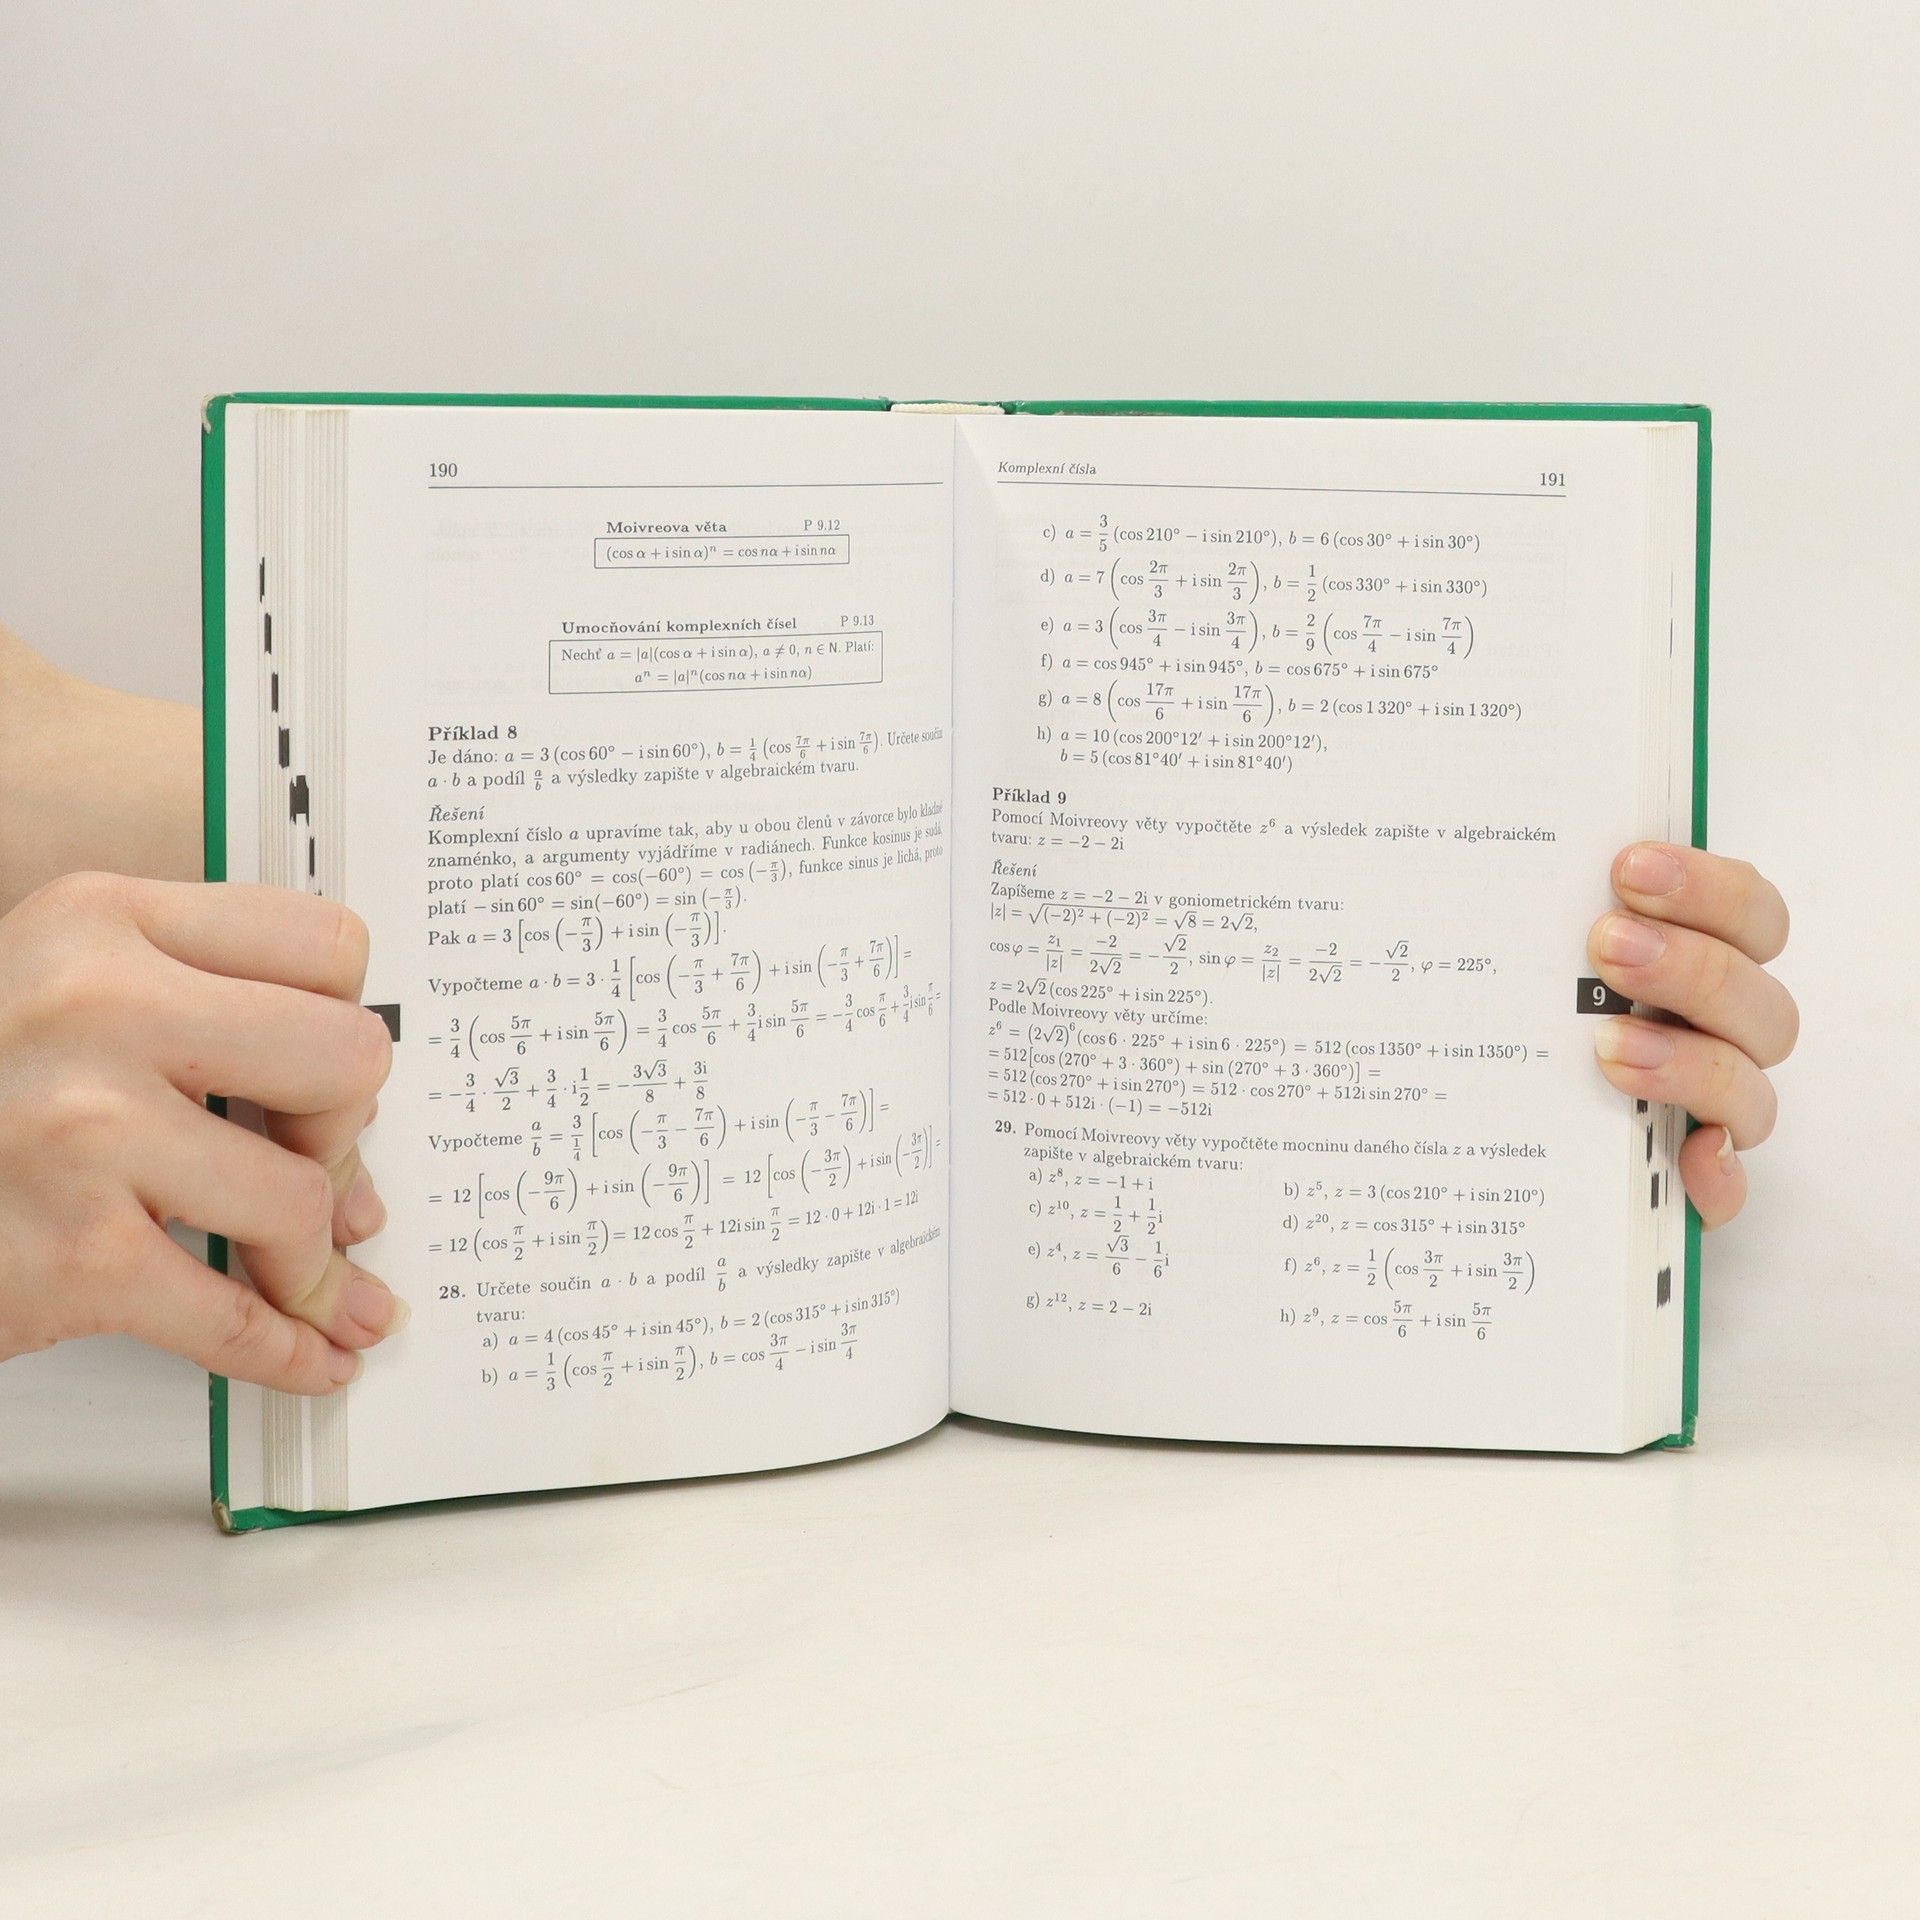 190
Moivreova věta P 9.12
(cos α + i sin α)ⁿ = cos nα + i sin nα
Umocňování komplexních čísel P 9.13
Nechť a = |a|(cos α + i sin α), a ≠ 0, n ∈ N. Platí:
aⁿ = |a|ⁿ(cos nα + i sin nα)
Příklad 8
Je dáno: a = 3 (cos 60° − i sin 60°), b = 1/4 (cos 7π/6 + i sin 7π/6). Určete součin
a · b a podíl a/b a výsledky zapište v algebraickém tvaru.
Řešení
Komplexní číslo a upravíme tak, aby u obou členů v závorce bylo kladné
znaménko, a argumenty vyjádříme v radiánech. Funkce kosinus je sudá,
proto platí cos 60° = cos(−60°) = cos (−π/3), funkce sinus je lichá, proto
platí − sin 60° = sin(−60°) = sin (−π/3).
Pak a = 3 [cos (−π/3) + i sin (−π/3)].
Vypočteme a · b = 3 · 1/4 [cos (−π/3 + 7π/6) + i sin (−π/3 + 7π/6)] =
= 3/4 (cos 5π/6 + i sin 5π/6) = 3/4 cos 5π/6 + 3/4 i sin 5π/6 = −3/4 cos π/6 + 3/4 i sin π/6 =
= −3/4 · √3/2 + 3/4 · i 1/2 = −3√3/8 + 3i/8
Vypočteme a/b = 3/(1/4) [cos (−π/3 − 7π/6) + i sin (−π/3 − 7π/6)] =
= 12 [cos (−9π/6) + i sin (−9π/6)] = 12 [cos (−3π/2) + i sin (−3π/2)] =
= 12 (cos π/2 + i sin π/2) = 12 cos π/2 + 12i sin π/2 = 12 · 0 + 12i · 1 = 12i
28. Určete součin a · b a podíl a/b a výsledky zapište v algebraickém
tvaru:
a) a = 4 (cos 45° + i sin 45°), b = 2 (cos 315° + i sin 315°)
b) a = 1/3 (cos π/2 + i sin π/2), b = cos 3π/4 − i sin 3π/4
Komplexní čísla 191
c) a = 3/5 (cos 210° − i sin 210°), b = 6 (cos 30° + i sin 30°)
d) a = 7 (cos 2π/3 + i sin 2π/3), b = 1/2 (cos 330° + i sin 330°)
e) a = 3 (cos 3π/4 − i sin 3π/4), b = 2/9 (cos 7π/4 − i sin 7π/4)
f) a = cos 945° + i sin 945°, b = cos 675° + i sin 675°
g) a = 8 (cos 17π/6 + i sin 17π/6), b = 2 (cos 1 320° + i sin 1 320°)
h) a = 10 (cos 200°12′ + i sin 200°12′),
b = 5 (cos 81°40′ + i sin 81°40′)
Příklad 9
Pomocí Moivreovy věty vypočtěte z⁶ a výsledek zapište v algebraickém
tvaru: z = −2 − 2i
Řešení
Zapíšeme z = −2 − 2i v goniometrickém tvaru:
|z| = √((−2)² + (−2)²) = √8 = 2√2,
cos φ = z₁/|z| = −2/(2√2) = −√2/2, sin φ = z₂/|z| = −2/(2√2) = −√2/2, φ = 225°,
z = 2√2 (cos 225° + i sin 225°).
Podle Moivreovy věty určíme:
z⁶ = (2√2)⁶ (cos 6 · 225° + i sin 6 · 225°) = 512 (cos 1350° + i sin 1350°) =
= 512 [cos (270° + 3 · 360°) + sin (270° + 3 · 360°)] =
= 512 (cos 270° + i sin 270°) = 512 · cos 270° + 512i sin 270° =
= 512 · 0 + 512i · (−1) = −512i
29. Pomocí Moivreovy věty vypočtěte mocninu daného čísla z a výsledek
zapište v algebraickém tvaru:
a) z⁸, z = −1 + i b) z⁵, z = 3 (cos 210° + i sin 210°)
c) z¹⁰, z = 1/2 + 1/2 i d) z²⁰, z = cos 315° + i sin 315°
e) z⁴, z = √3/6 − 1/6 i f) z⁶, z = 1/2 (cos 3π/2 + i sin 3π/2)
g) z¹², z = 2 − 2i h) z⁹, z = cos 5π/6 + i sin 5π/6
9